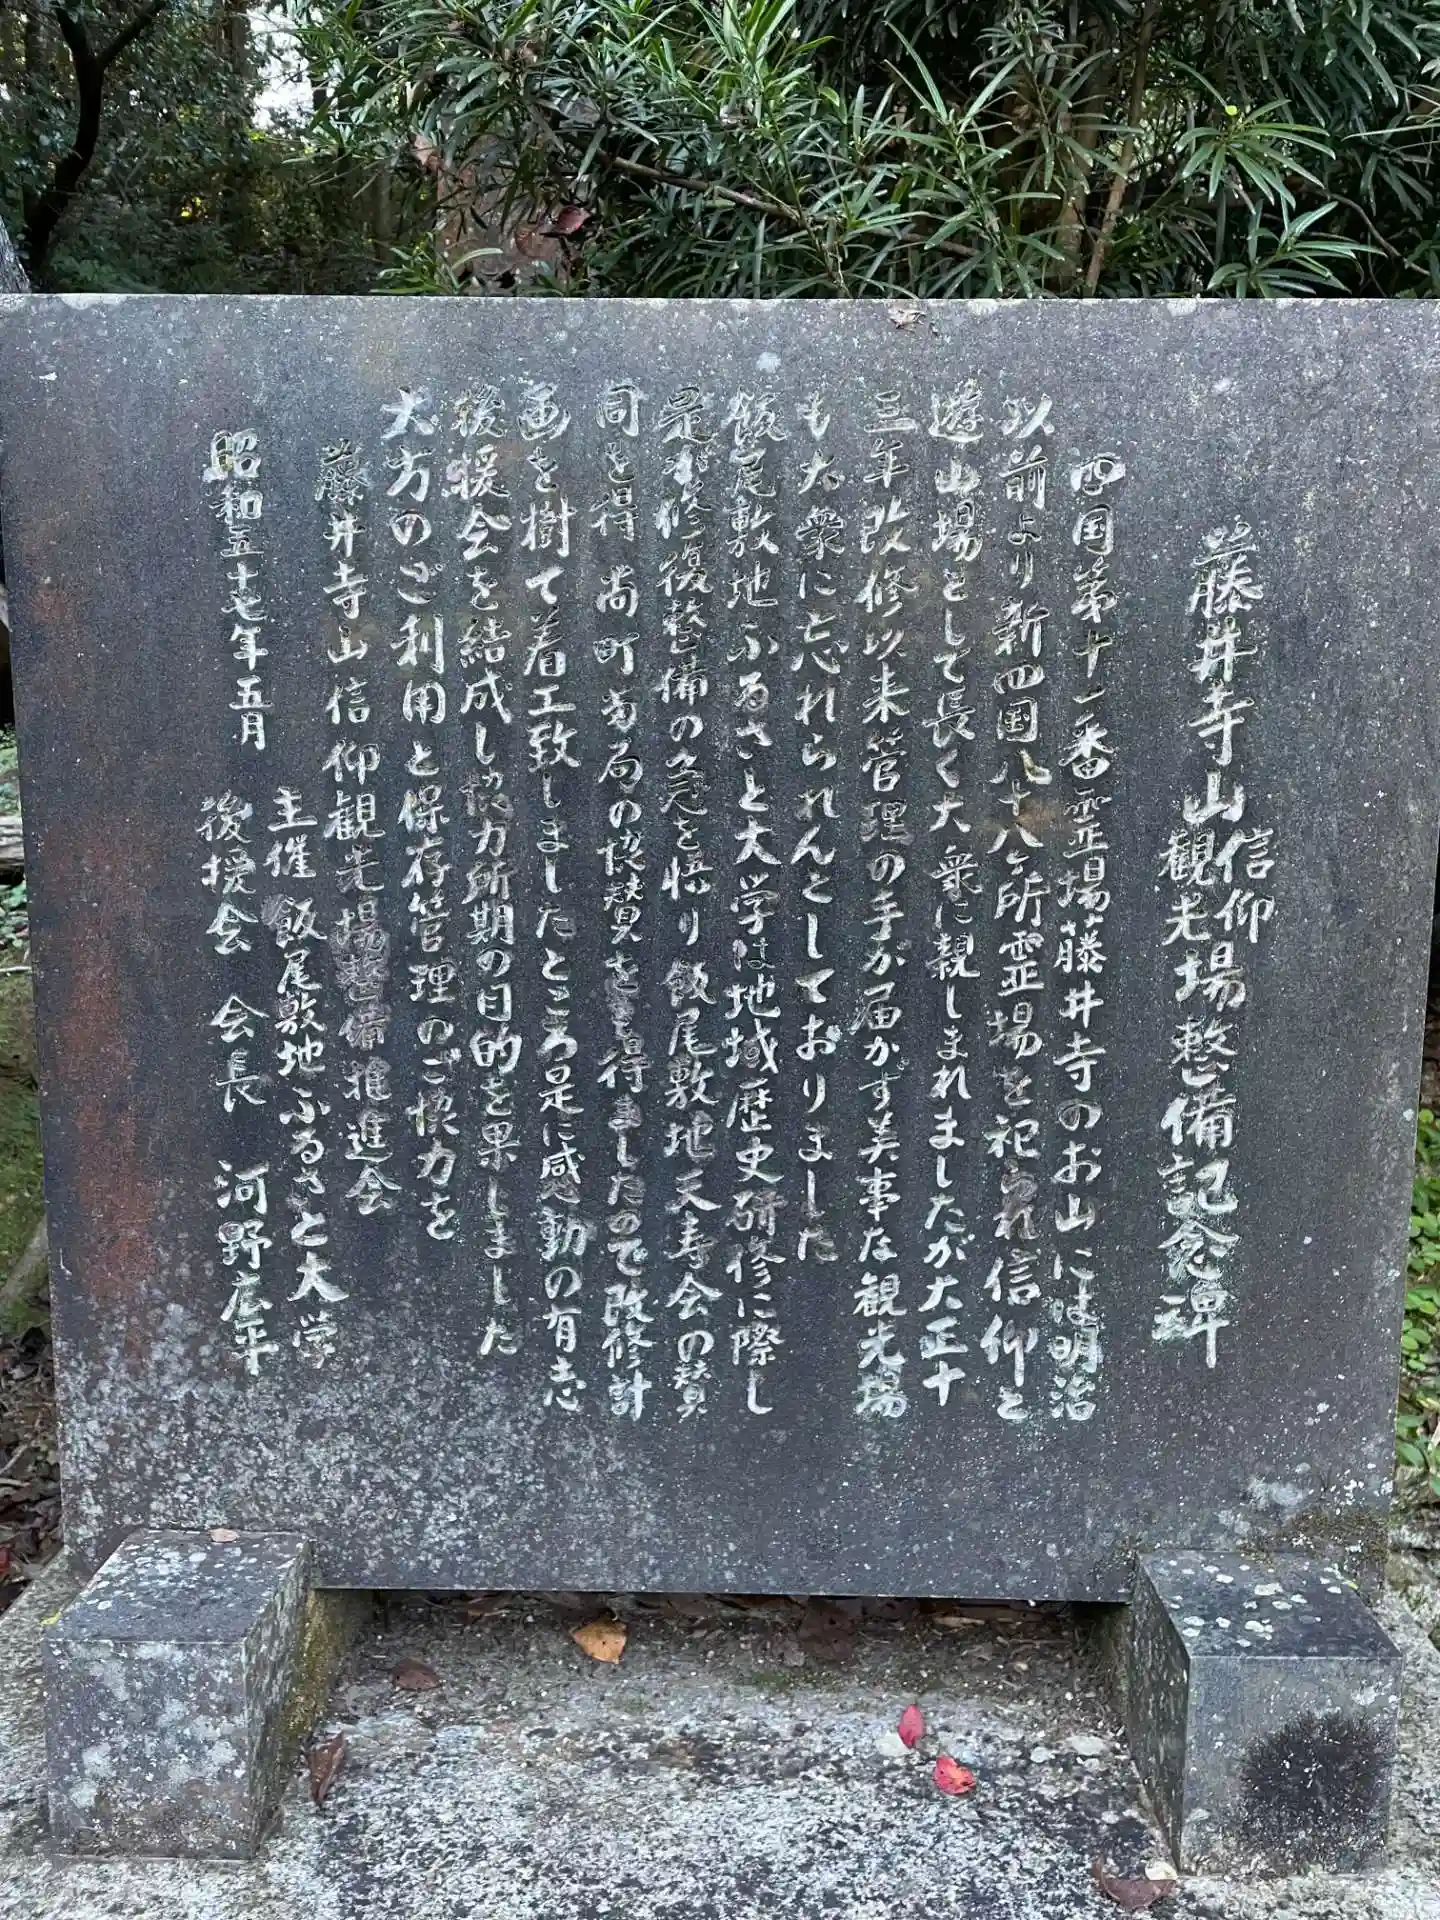 藤井寺山信仰観光場整備記念碑
四国第十一番霊場藤井寺のお山には明治
以前より新四国八十八ヶ所霊場を祀られ信仰と
遊山場として長く大衆に親しまれましたが大正十
三年改修以来管理の手が届かず美事な観光場
も大衆に忘れられんとしておりました
飯尾敷地ふるさと大学は地域歴史研修に際し
是が修復整備の急を悟り飯尾敷地天寿会の賛
同を得 尚町当局の協賛をも得ましたので改修計
画を樹て着工致しましたところ是に感動の有志
後援会を結成し協力所期の目的を果しました
大方のご利用と保存管理のご協力を
藤井寺山信仰観光場整備推進会
主催 飯尾敷地ふるさと大学
昭和五十七年五月 後援会 会長 河野広平